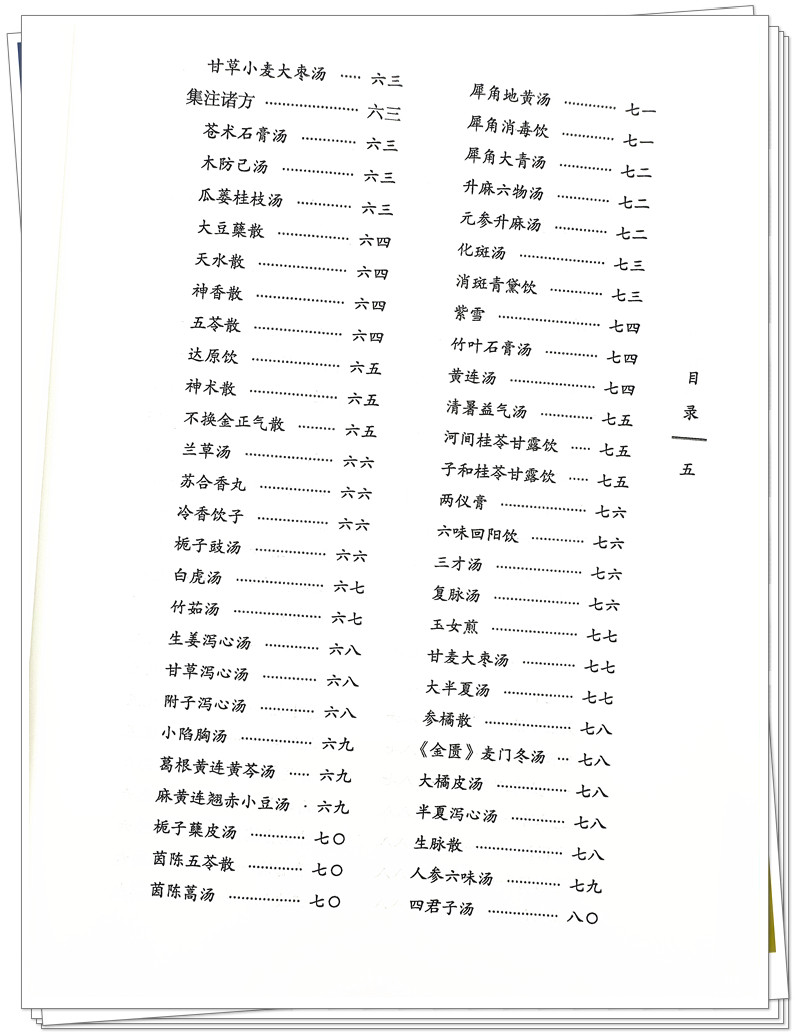 甘草小麦大枣汤 ····· 六三
集注诸方 ····················· 六三
苍术石膏汤 ············ 六三
木防己汤 ················ 六三
瓜蒌桂枝汤 ············ 六三
大豆蘖散 ················ 六四
天水散 ···················· 六四
神香散 ···················· 六四
五苓散 ···················· 六四
达原饮 ···················· 六五
神术散 ···················· 六五
不换金正气散 ········ 六五
兰草汤 ···················· 六六
苏合香丸 ················ 六六
冷香饮子 ················ 六六
栀子豉汤 ················ 六六
白虎汤 ···················· 六七
竹茹汤 ···················· 六七
生姜泻心汤 ············ 六八
甘草泻心汤 ············ 六八
附子泻心汤 ············ 六八
小陷胸汤 ················ 六九
葛根黄连黄芩汤 ····· 六九
麻黄连翘赤小豆汤 · 六九
栀子蘖皮汤 ············ 七〇
茵陈五苓散 ············ 七〇
茵陈蒿汤 ················ 七〇
犀角地黄汤 ············ 七一
犀角消毒饮 ············ 七一
犀角大青汤 ············ 七二
升麻六物汤 ············ 七二
元参升麻汤 ············ 七二
化斑汤 ···················· 七三
消斑青黛饮 ············ 七三
紫雪 ························ 七四
竹叶石膏汤 ············ 七四
黄连汤 ···················· 七四
清暑益气汤 ············ 七五
河间桂苓甘露饮 ····· 七五
子和桂苓甘露饮 ····· 七五
两仪膏 ···················· 七六
六味回阳饮 ············ 七六
三才汤 ···················· 七六
复脉汤 ···················· 七六
玉女煎 ···················· 七七
甘麦大枣汤 ············ 七七
大半夏汤 ················ 七七
参橘散 ···················· 七八
《金匮》麦门冬汤 ··· 七八
大橘皮汤 ················ 七八
半夏泻心汤 ············ 七八
生脉散 ···················· 七八
人参六味汤 ············ 七九
四君子汤 ················ 八〇
目录
五